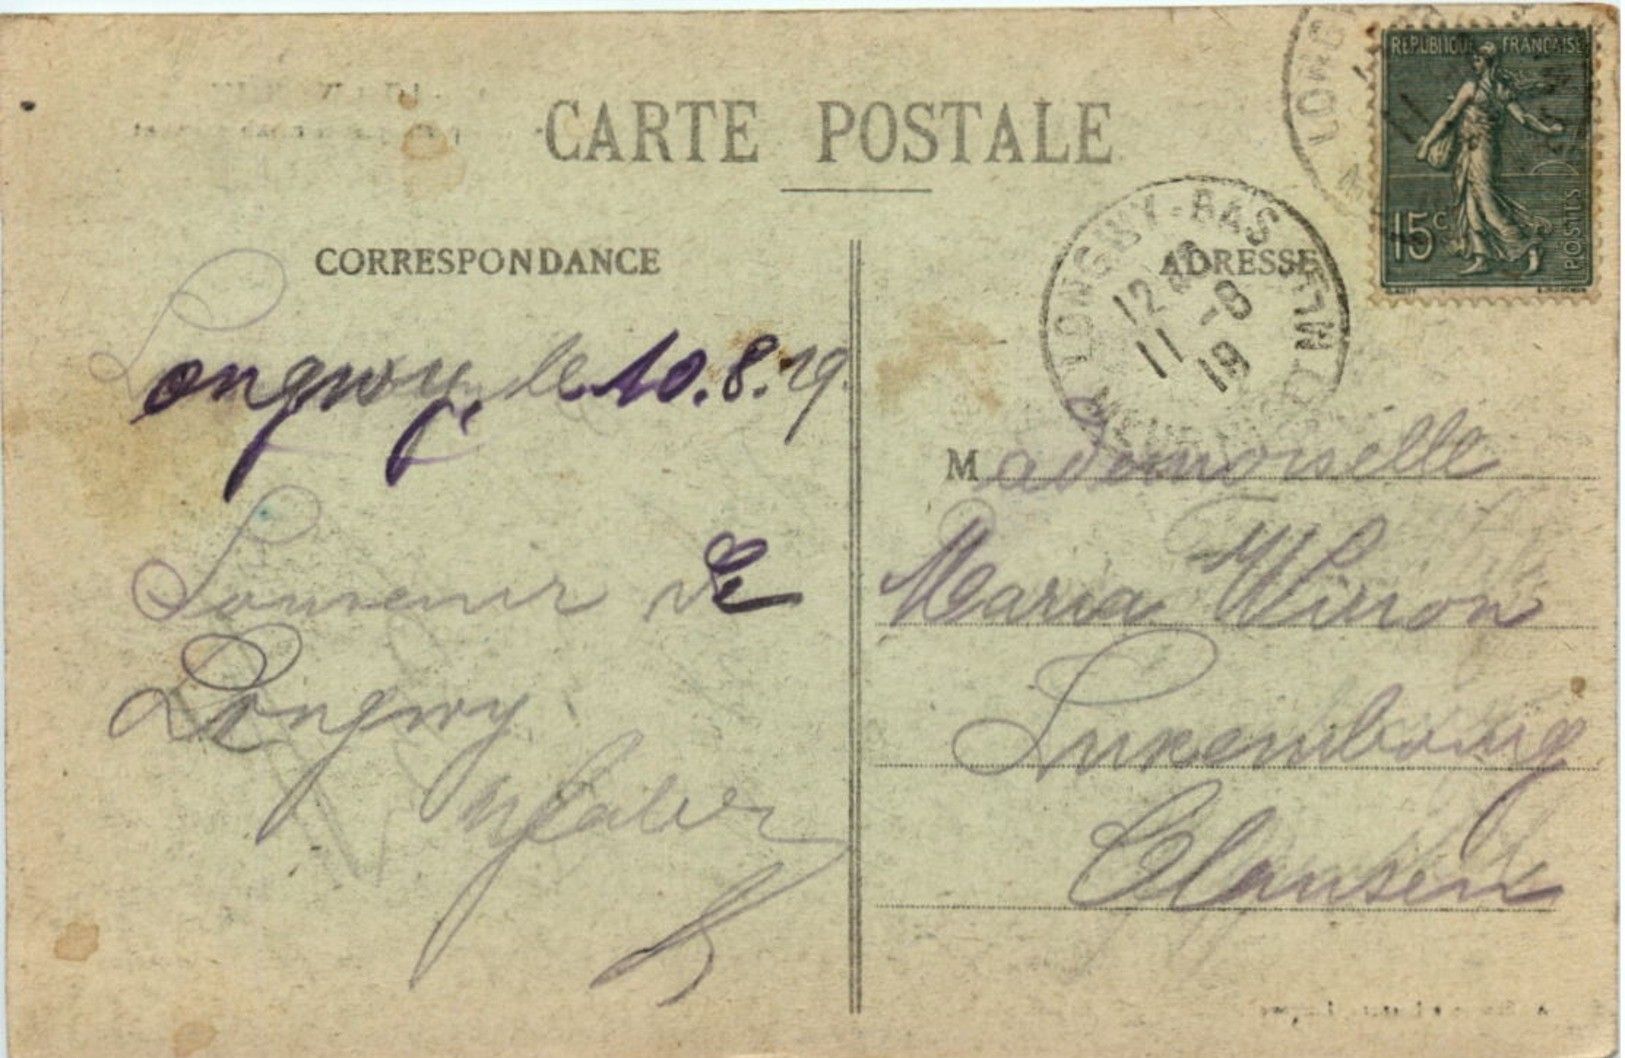 CARTE POSTALE
CORRESPONDANCE
Longwy, le 10.8.19.
Souvenir de
Longwy
ADRESSE
Mademoiselle
Maria Wirion
Luxembourg
Clausen
REPUBLIQUE FRANÇAISE
15c
POSTES
LONGWY-BAS
12
11 -8
19